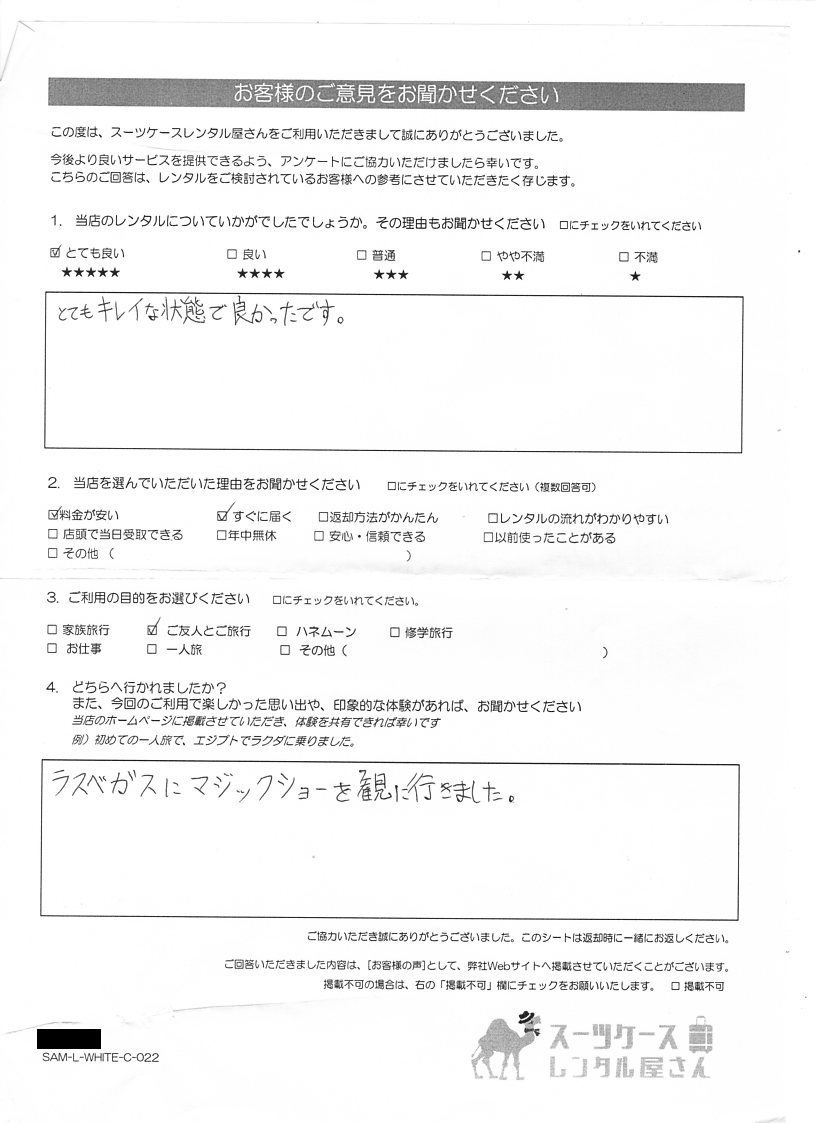 お客様のご意見をお聞かせください
この度は、スーツケースレンタル屋さんをご利用いただきまして誠にありがとうございました。
今後より良いサービスを提供できるよう、アンケートにご協力いただけましたら幸いです。
こちらのご回答は、レンタルをご検討されているお客様への参考にさせていただきたく存じます。
1. 当店のレンタルについていかがでしたでしょうか。その理由もお聞かせください □にチェックをいれてください
☑ とても良い □ 良い □ 普通 □ やや不満 □ 不満
★★★★★ ★★★★ ★★★ ★★ ★
とてもキレイな状態で良かったです。
2. 当店を選んでいただいた理由をお聞かせください □にチェックをいれてください（複数回答可）
☑料金が安い ☑ すぐに届く □返却方法がかんたん □レンタルの流れがわかりやすい
□ 店頭で当日受取できる □年中無休 □ 安心・信頼できる □以前使ったことがある
□ その他（ ）
3. ご利用の目的をお選びください □にチェックをいれてください。
□ 家族旅行 ☑ ご友人とご旅行 □ ハネムーン □ 修学旅行
□ お仕事 □ 一人旅 □ その他（ ）
4. どちらへ行かれましたか？
また、今回のご利用で楽しかった思い出や、印象的な体験があれば、お聞かせください
当店のホームページに掲載させていただき、体験を共有できれば幸いです
例）初めての一人旅で、エジプトでラクダに乗りました。
ラスベガスにマジックショーを観に行きました。
ご協力いただき誠にありがとうございました。このシートは返却時に一緒にお返しください。
ご回答いただきました内容は、[お客様の声]として、弊社Webサイトへ掲載させていただくことがございます。
掲載不可の場合は、右の「掲載不可」欄にチェックをお願いいたします。 □ 掲載不可
SAM-L-WHITE-C-022
スーツケース
レンタル屋さん